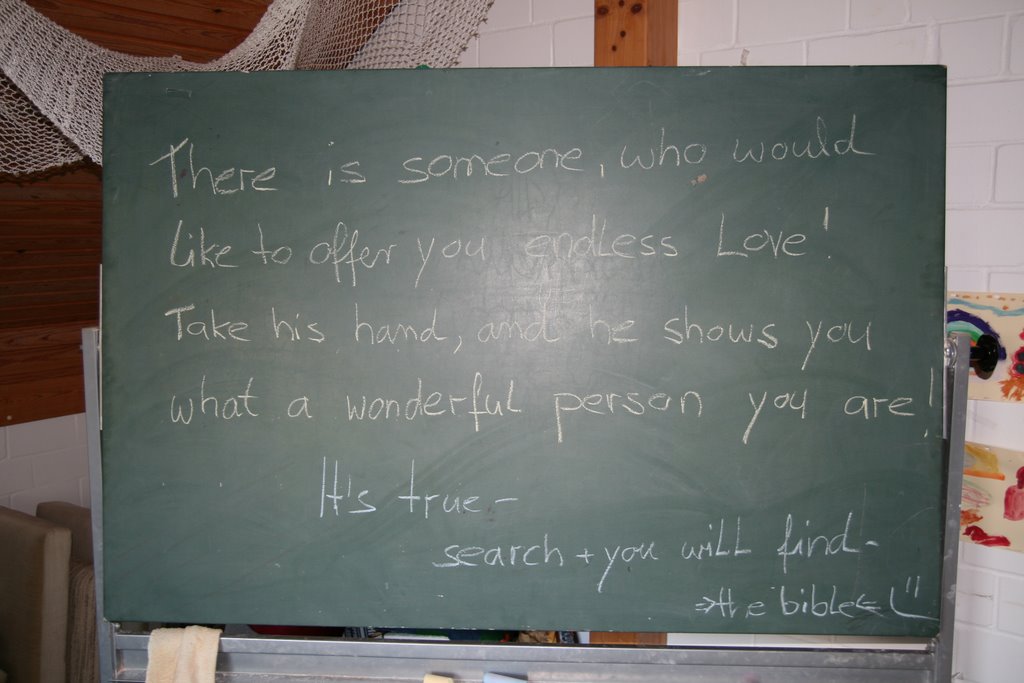 There is someone, who would
like to offer you endless Love!
Take his hand, and he shows you
what a wonderful person you are!
It's true -
search + you will find -
⇒ the bible ⇐ (¨